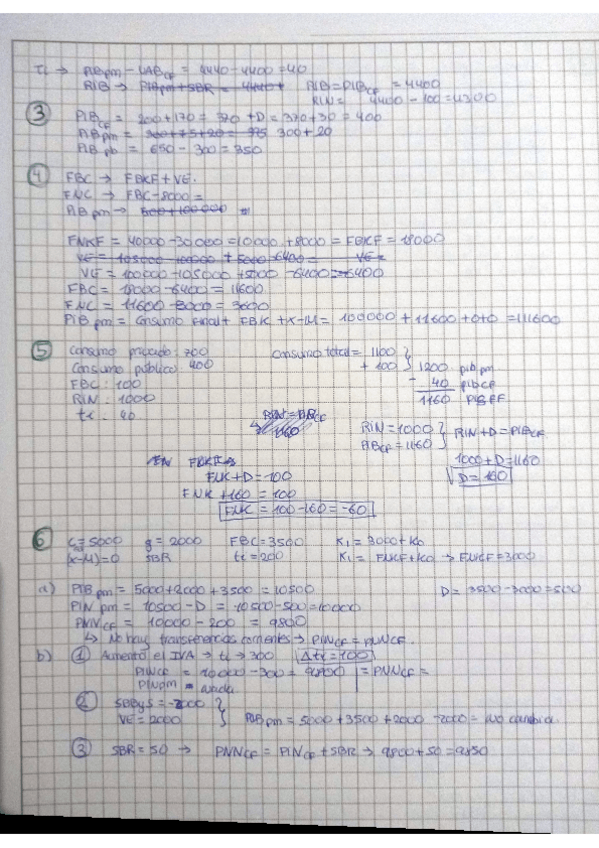 Ti → PIBpm - VABcf = 4440 - 4400 = 40
RIB → PIBpm + SBR = 4440 + PIB = PIBcf = 4400
RIN = 4400 - 100 = 4300
③ PIBcf = 200 + 170 = 370 + D = 370 + 30 = 400
PIBpm = 300 + 75 + 20 = 395 300 + 20
PIBpb = 650 - 300 = 350
④ FBC → FBKF + VE.
FNC → FBC - 8000 =
PIBpm → 500 + 100000 =
FNKF = 40000 - 30000 = 10000 + 8000 = FBKF = 18000
VE = 105000 - 100000 + 5000 - 6400 = VE =
VE = 100000 - 105000 + 5000 - 6400 = -6400
FBC = 18000 - 6400 = 11600
FNC = 11600 - 8000 = 3600
PIBpm = Consumo Final + FBK + X-M = 100000 + 11600 + 0 + 0 = 111600
⑤ Consumo privado: 700 Consumo total = 1100
Consumo público: 400 + 100 } 1200 pibpm
FBC: 100 - 40 pibcf
RIN: 1000 1160 PIBcf
ti: 40 RIN = PIBcf
↳ 1160 RIN = 1000 } RIN + D = PIBcf
PIBcf = 1160
1000 + D = 1160
FNK + D = 100 D = 160
FNK + 160 = 100
FNK = 100 - 160 = -60
⑥ C = 5000 g = 2000 FBC = 3500 K1 = 3000 + K0
(X-M) = 0 SBR ti = 200 K1 = FNKF + K0 → FNKF = 3000
a) PIBpm = 5000 + 2000 + 3500 = 10500 D = 3500 - 3000 = 500
PINpm = 10500 - D = 10500 - 500 = 10000
PNNcf = 10000 - 200 = 9800
↳ No hay transferencias corrientes → PINcf = PNNcf.
b) ① Aumento el IVA → ti → 300 Δti = 100
PINcf = 10000 - 300 = 9700 = PNNcf =
PINpm = nada
② SBByS = -2000 }
VE = 2000 } PIBpm = 5000 + 3500 + 2000 - 2000 = no cambia.
③ SBR = 50 → PNNcf = PINcf + SBR → 9800 + 50 = 9850